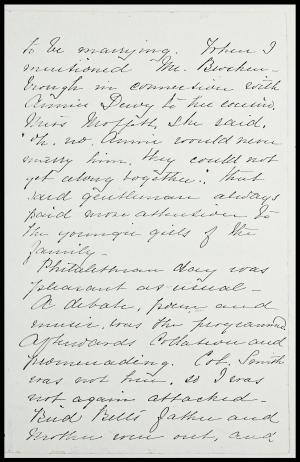 to be marrying. When I
mentioned Mr. Brocken-
brough in connection with
Annie Dewy to the cousin,
Miss Moffett, she said,
"Oh, no, Annie would never
marry him, they could not
get along together"; that
said gentleman always
paid more attention to
the younger girls of the
family—
Philalethean day was
pleasant as usual—
A debate, poem and
music, was the programme.
Afterwards Collation and
promenading. Col. Smith
was not him, so I was
not again attacked—
Bird Bell's father and
Mother were out, and